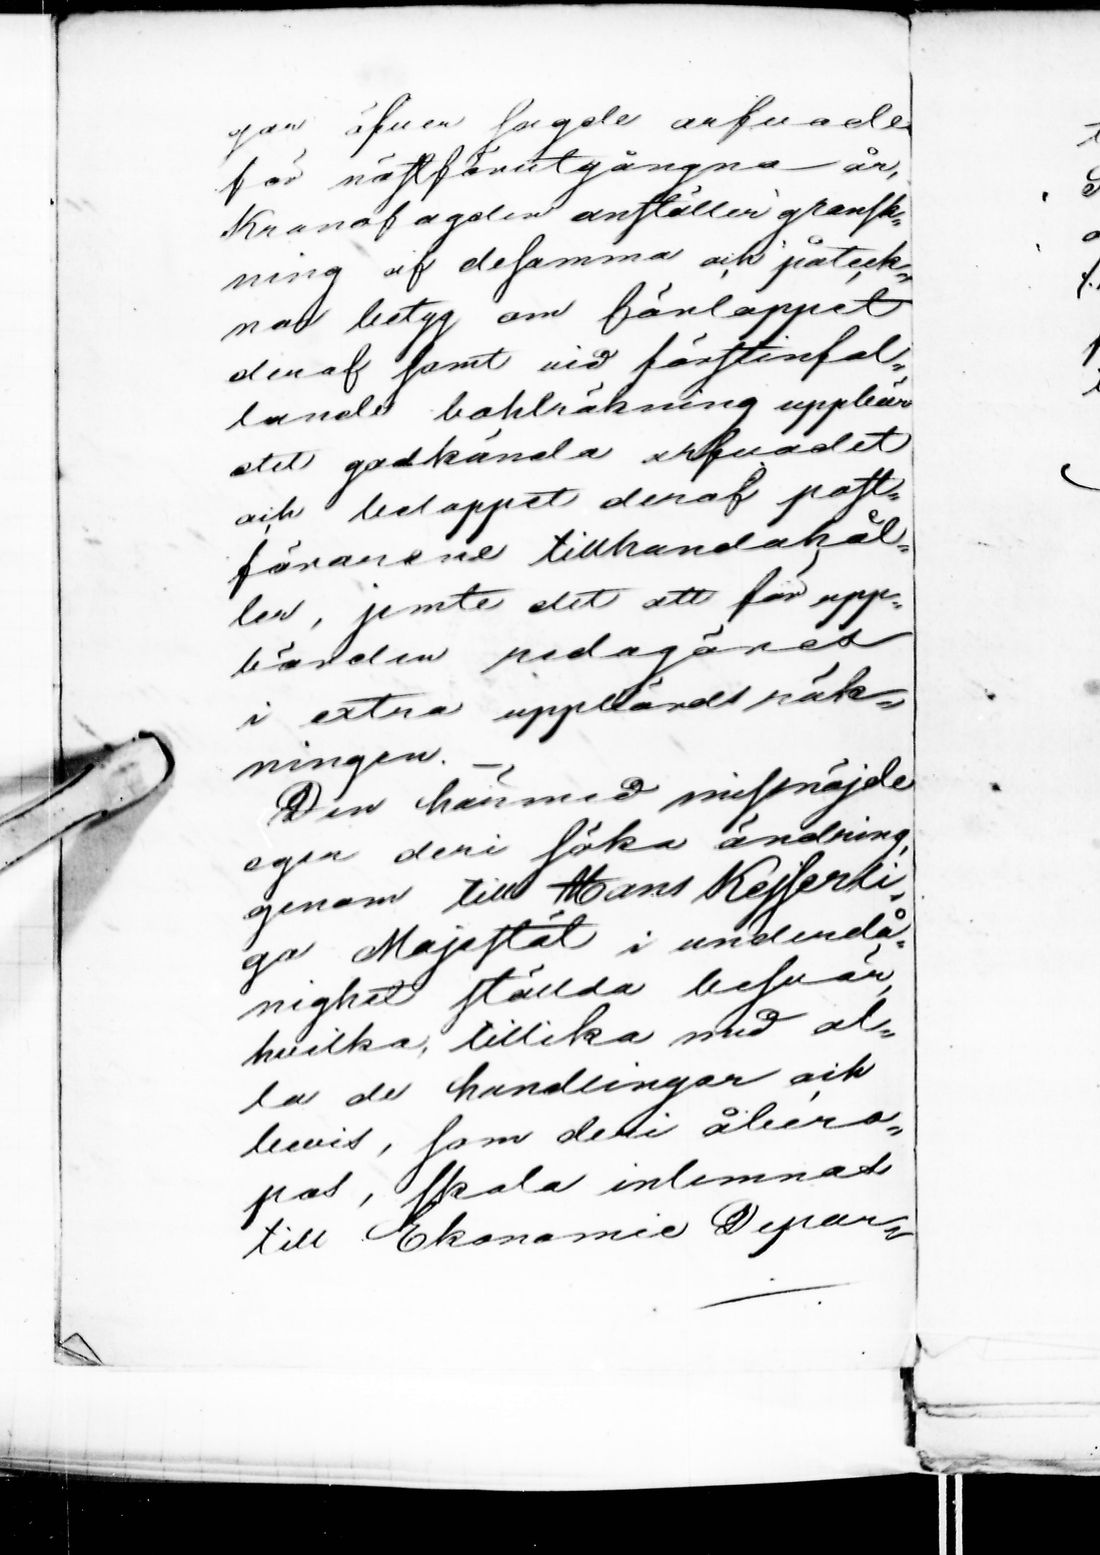 gar öfver sagde arfvode
för nästförutgångna år,
Kronofogden anställer gransk-
ning af desamma och påteck-
nar betyg om förloppet
deraf samt vid förstinfal-
lande bokträkning uppbär
det godkända arfvodet
och beloppet deraf post-
förarene tillhandahål-
ler, jemte det att för upp-
börden redogöres
i extra uppbördsräk-
ningen. —
Den härmed missnöjde
eger deri söka ändring,
genom till Hans Kejserli-
ga Majestät i underdå-
nighet ställda besvär,
hvilka, tillika med al-
la de handlingar och
bevis, som deri åbero-
pas, skola inlemnas
till Ekonomie Depar-